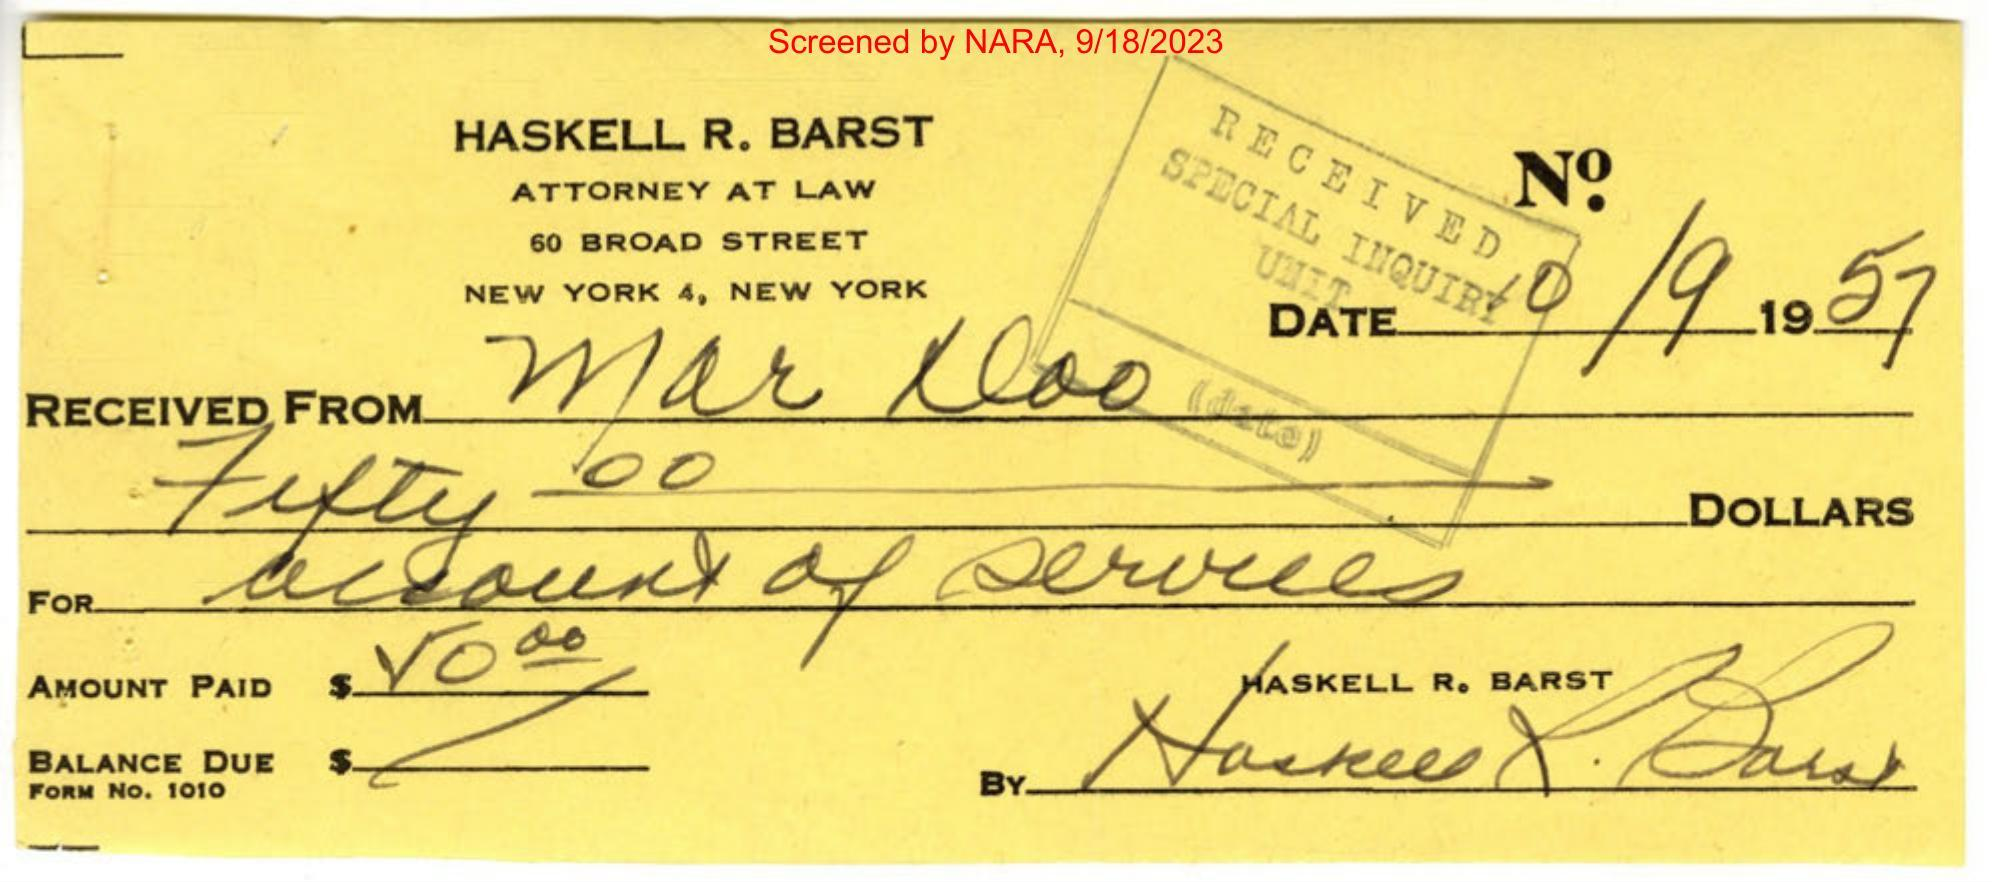 Screened by NARA, 9/18/2023
HASKELL R. BARST
ATTORNEY AT LAW
60 BROAD STREET
NEW YORK 4, NEW YORK
RECEIVED
SPECIAL INQUIRY
UNIT
(date)
No.
DATE 10/9 1957
RECEIVED FROM Mar Doo
Fifty 00 DOLLARS
FOR account of services
AMOUNT PAID $ 50 00
BALANCE DUE $
FORM NO. 1010
HASKELL R. BARST
BY Haskell R. Barst